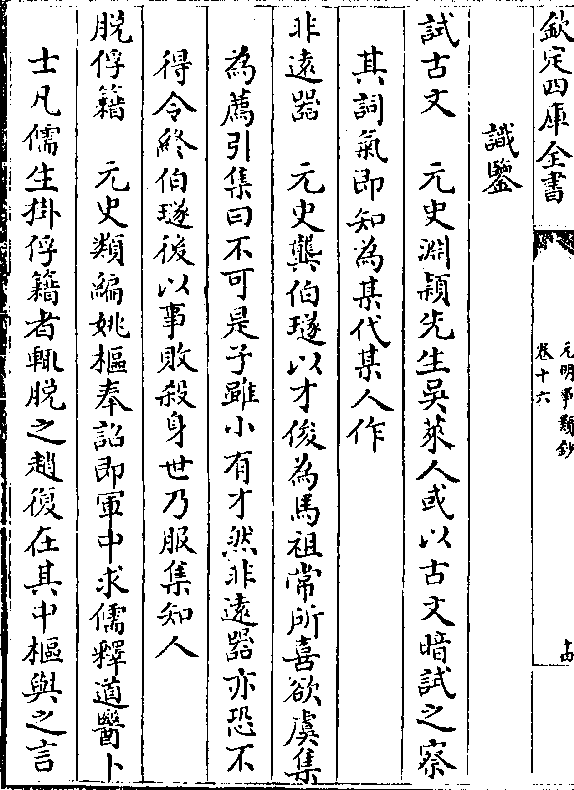 欽定四庫全書
元明事類鈔
卷十六
十四
識鑒
試古文　元史淵穎先生吳萊人或以古文暗試之察
其詞氣即知為某代某人作
非遠器　元史龔伯璲以才俊為馬祖常所喜欲虞集
為薦引集曰不可是子雖小有才然非遠器亦恐不
得令終伯璲後以事敗殺身世乃服集知人
脱俘籍　元史類編姚樞奉詔即軍中求儒釋道醫卜
士凡儒生掛俘籍者輒脱之趙復在其中樞與之言